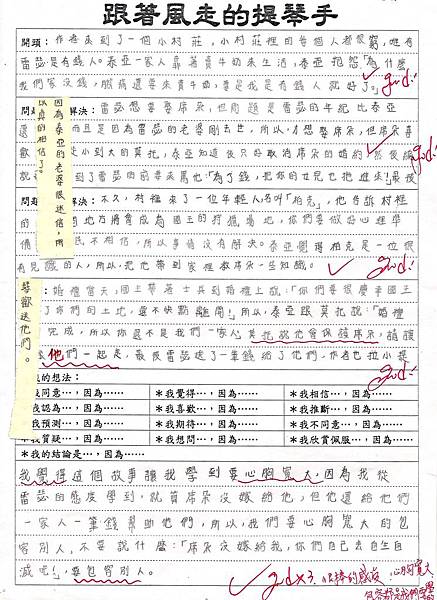 跟著風走的提琴手
開頭：作者來到了一個小村莊，小村莊裡的每個人都很窮，唯有
雷瑟是有錢人。泰亞一家人靠著賣牛奶來生活，泰亞抱怨：「為什麼
我們家沒錢，腳病還要來賣牛奶，要是我是有錢人就好了。」
good!
解決：雷瑟想要娶席朵，但問題是雷瑟的年紀比泰亞
還 而且是因為雷瑟的老婆剛去世，所以，才想娶席朵，但席朵喜
歡 從小到大的莫托，泰亞知道後只好取消席朵的婚約，然後
就 到了雷瑟的面前來罵他：「為了錢，把你的女兒也拖進來！」最後
good!
因為泰亞的老婆很迷信，所
以真的相信了。
解決：不久，村裡來了一位年輕人名叫「柏克」，他告訴村裡
的 地方將會成為國王的狩獵場地，你們要做好心理準
備 民不相信，所以事情沒有解決。泰亞覺得柏克是一位很
有見識的人，所以，把他帶到家裡教席朵一些知識。
good!
：婚禮當天，國上帶著士兵到婚禮上說：「你們要很慶幸國王
了你們的土地，還不快點離開」，所以，泰亞跟莫托說：「婚禮
完成，所以你還不是我們一家人」莫托說他會保護席朵，請讓
他們一起走，最後雷瑟送了一筆錢給了他們，作者也拉小提
琴歡送他們。
good!
我的想法：
我同意…，因為……
＊我覺得…，因為……
＊我相信…，因為……
我認為…，因為……
＊我喜歡…，因為……
＊我推斷…，因為……
我預測…，因為……
＊我期待…，因為……
＊我不同意…，因為……
我質疑…，因為……
＊我想問…，因為……
＊我欣賞佩服…，因為……
＊我的結論是…，因為……
我覺得這個故事讓我學到要心胸寬大，因為我從
雷瑟的態度學到，就算席朵沒嫁給他，但他還給他們
一家人一筆錢幫助他們，所以，我們要心胸寬大的包
容別人，不要說什麼：「席朵沒嫁給我，你們自己去自生自
滅吧」，要包容別人。
good×3.
心胸寬大